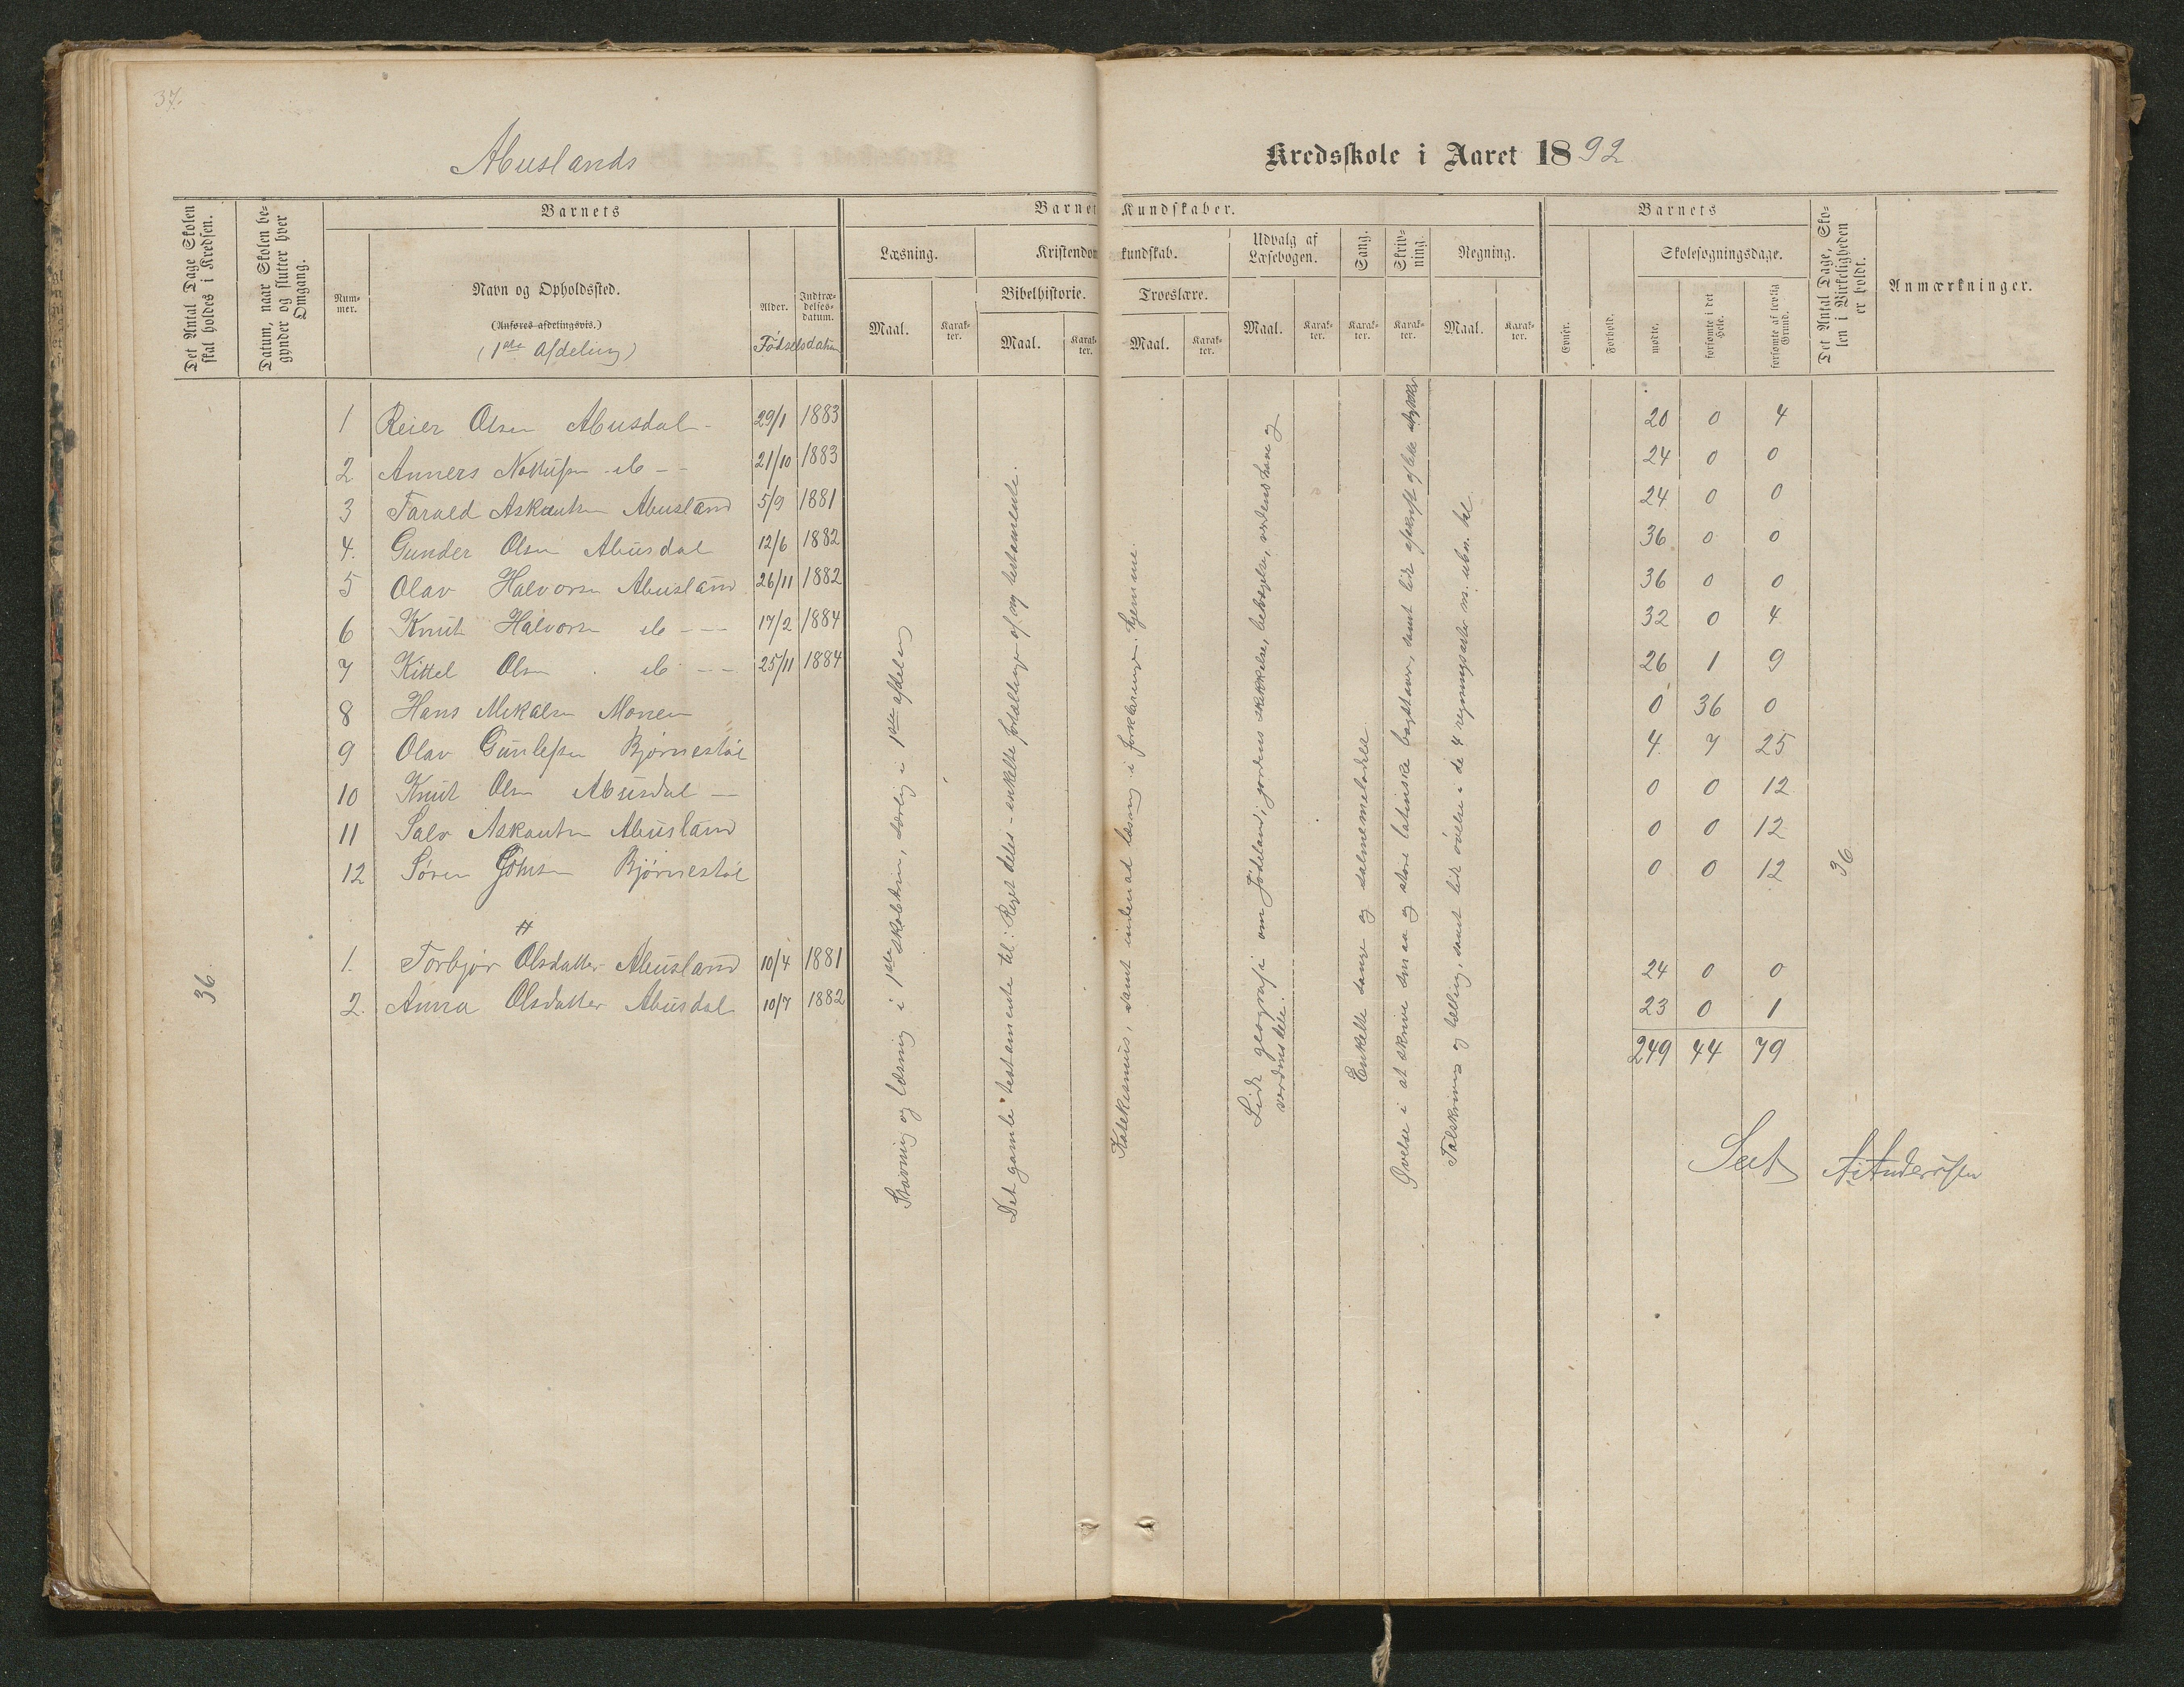 37.
Abuslands
Kredsskole i Aaret 1892
Det Antal Dage Skolen skal holdes i Kredsen.
Datum, naar Skolen begynder og slutter hver Omgang.
Barnets
Nummer.
Navn og Opholdssted.
(Anføres afdelingsvis.)
(1ste Afdeling)
Alder.
Indtrædelsesdatum.
Fødselsdatum
Barnets Kundskaber.
Læsning.
Maal.
Karakter.
Kristendomskundskab.
Bibelhistorie.
Maal.
Karakter.
Troeslære.
Maal.
Karakter.
Udvalg af Læsebogen.
Maal.
Karakter.
Sang.
Karakter.
Skrivning.
Karakter.
Regning.
Maal.
Karakter.
Barnets
Evner.
Forhold.
Skolesøgningsdage.
mødte.
forsømte i det Hele.
forsømte af lovlig Grund.
Det Antal Dage, Skolen i Virkeligheden er holdt.
Anmærkninger.
1 Reier Olsen Abusdal - 29/1 1883 20 0 4
2 Anners Nottufsen do - - 21/10 1883 24 0 0
3 Tarald Askautsen Abusland 5/9 1881 24 0 0
4. Gunder Olsen Abusdal 12/6 1882 36 0 0
5 Olav Halvorsen Abusland 26/11 1882 36 0 0
6 Knut Halvorsen do - - - 17/2 1884 32 0 4
7 Kittel Olsen do - - 25/11 1884 26 1 9
8 Hans Mikalsen Monen 0 36 0
9 Olav Gunlefsen Bjørnestøl 4 7 25
10 Knut Olsen Abusdal - 0 0 12
11 Salv Askautsen Abusland 0 0 12
12 Søren Johnsen Bjørnestøl 0 0 12
#
1. Torbjør Olsdatter Abusland 10/4 1881 24 0 0
2. Anna Olsdatter Abusdal 10/7 1882 23 0 1
249 44 79
36
Stavning og læsning i 1ste skoletrin, særlig i 1ste afdeling
Det gamle testamente til: Riget deles - enkelte fortællinger af ny testamente.
Katekismus, samt indenad læsning i forklaringen. hjemme.
Lidt geografi om Jødeland, jordens skikkelse, bevægelse, verdenshave og
verdensdele.
Enkelte sange og salmemelodier
Øvelse i at skrive smaa og store latinske bogstaver, samt lidt afskrift af lette stykker
Talskrivning og tælling, samt lidt øvelse i de 4 regningsarter m. ubn. tal
36
Seet A. Andersen